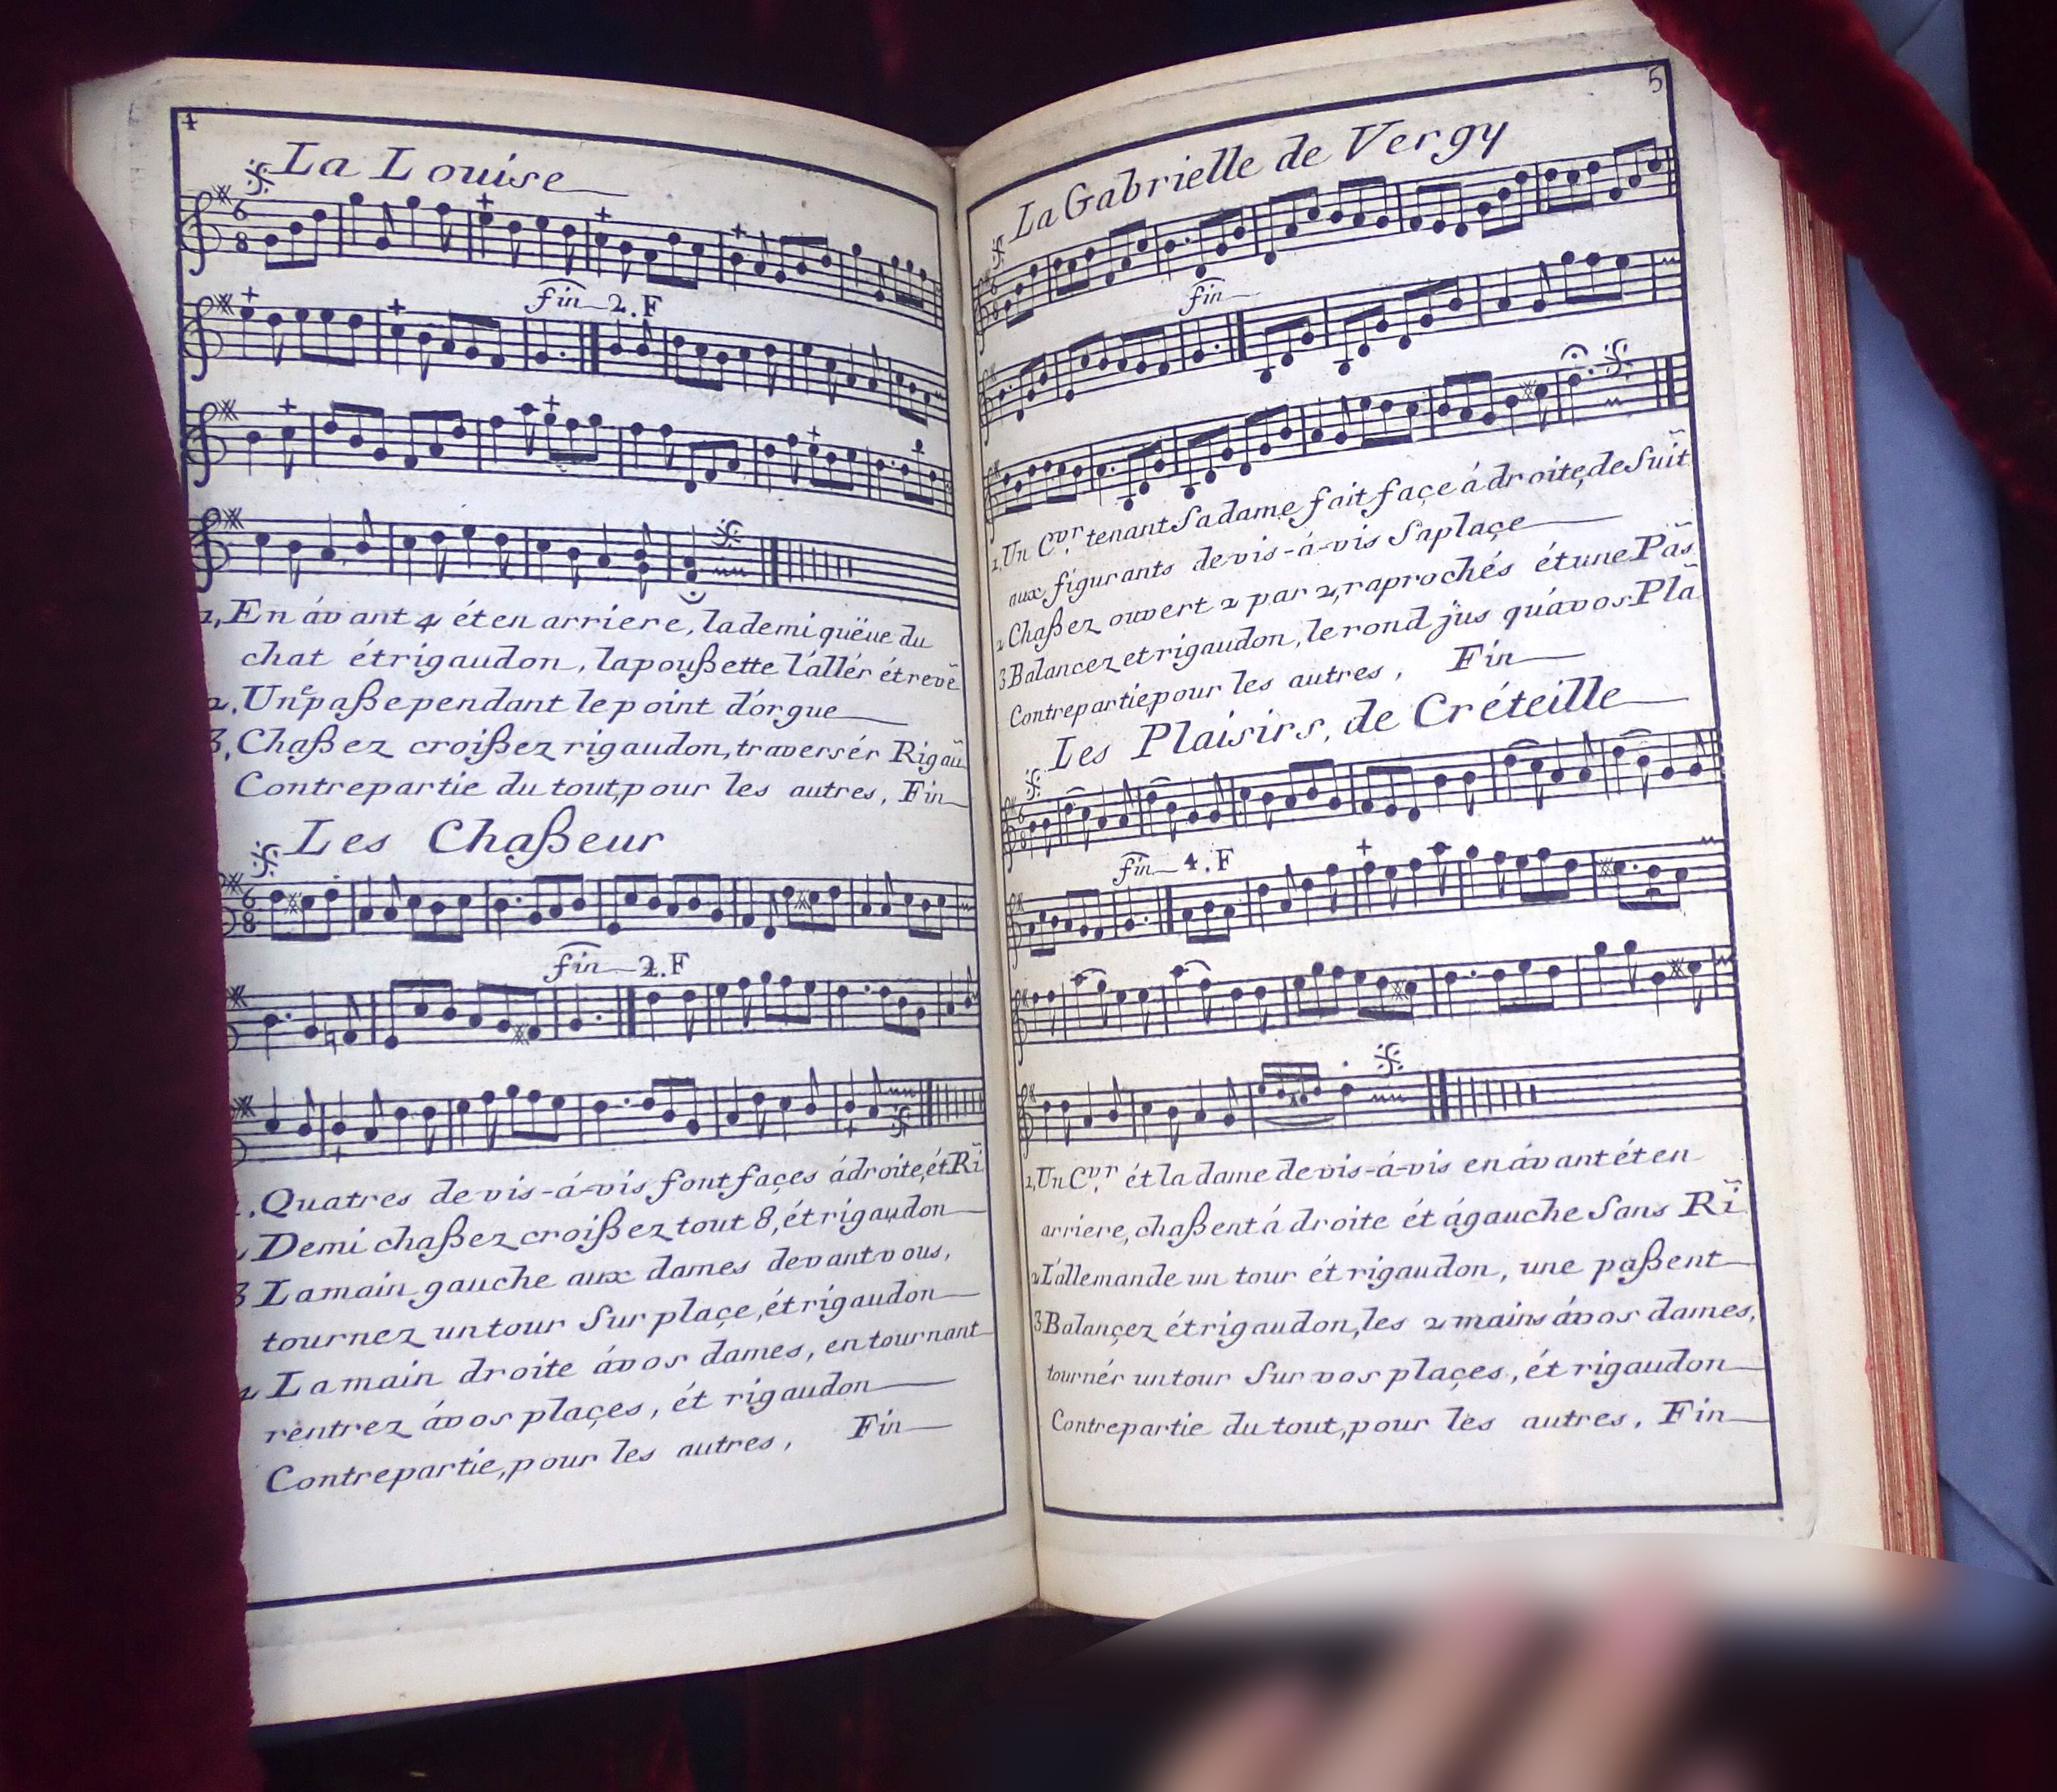 4
La Louise
6
8
fin 2.F
1, En ávant 4 ét en arriere, la demi quëue du
chat ét rigaudon, la poußette l'állér ét revẽ
2, Une paße pendant le point d'órgue
3, Chaßez croißez rigaudon, traversér Rigaũ
Contrepartie du tout, pour les autres, Fin
Les Chaßeur
6
8
fin 2.F
1. Quatres de vis-á-vis font façes á droite, ét Rĩ
Demi chaßez croißez tout 8, ét rigaudon
3 La main gauche aux dames devant vous,
tournez un tour Sur plaçe, ét rigaudon
4 La main droite ávos dames, en tournant
rentrez ávos plaçes, ét rigaudon
Contrepartie, pour les autres, Fin
5
La Gabrielle de Vergy
6
8
fin
1, Un Cvr. tenant Sa dame fait façe á droite, de Suit̃
aux figurants de vis-á-vis Sa plaçe
2 Chaßez ouvert 2 par 2, raprochés ét une Pãs
3 Balancez et rigaudon, le rond jus qu'ávos Plã
Contrepartie pour les autres, Fin
Les Plaisirs, de Créteille
6
8
fin 4.F
1, Un Cvr. ét la dame de vis-á-vis en ávant ét en
arriere, chaßent á droite ét ágauche Sans Rĩ
2 L'allemande un tour ét rigaudon, une paßent
3 Balançez ét rigaudon, les 2 mains ávos dames,
tournér un tour Sur vos plaçes, ét rigaudon
Contrepartie du tout, pour les autres, Fin